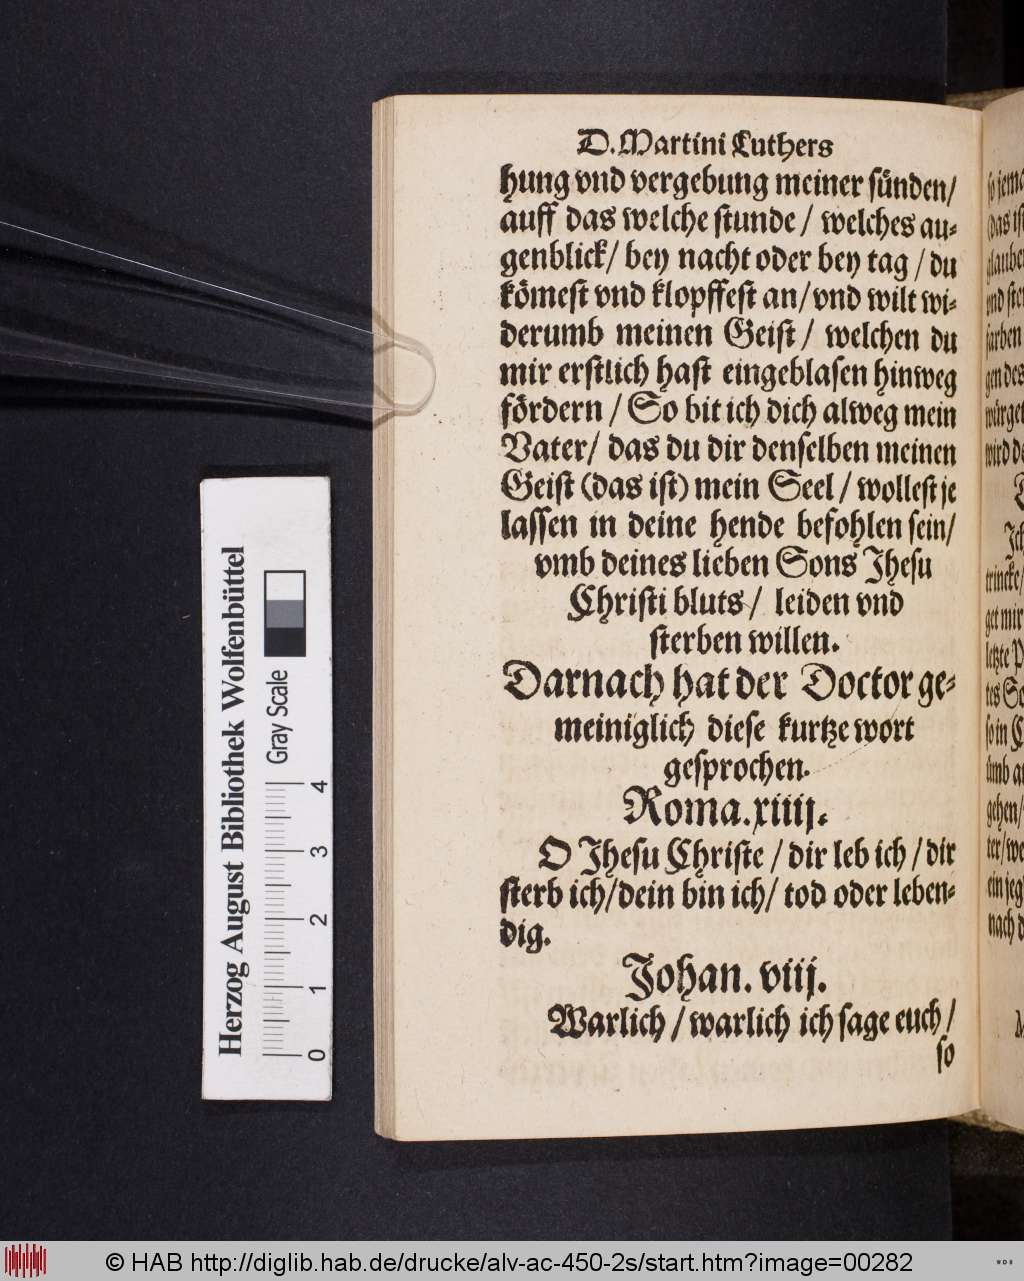 D. Martini Luthers
hung vnd vergebung meiner sünden/
auff das welche stunde / welches au-
genblick/ bey nacht oder bey tag / du
kömest vnd klopffest an/ vnd wilt wi-
derumb meinen Geist / welchen du
mir erstlich hast eingeblasen hinweg
fördern / So bit ich dich alweg mein
Vater/ das du dir denselben meinen
Geist (das ist) mein Seel / wollest je
lassen in deine hende befohlen sein/
vmb deines lieben Sons Jhesu
Christi bluts / leiden vnd
sterben willen.
Darnach hat der Doctor ge-
meiniglich diese kurtze wort
gesprochen.
Roma. xiiij.
O Jhesu Christe / dir leb ich / dir
sterb ich/ dein bin ich/ tod oder leben-
dig.
Johan. viij.
Warlich / warlich ich sage euch /
so
so jema
(das ist
glaube
vnd ster
farben
gen des
würget
wird de
Ich
trincke/
get mir
letzte P
tes So
so in C
ümb a
gehen/
ter/ we
ein jeg
nach d
Herzog August Bibliothek Wolfenbüttel
Gray Scale
0 1 2 3 4
© HAB http://diglib.hab.de/drucke/alv-ac-450-2s/start.htm?image=00282